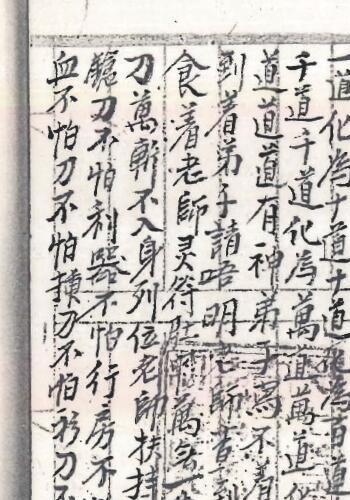 一道化為十道十道化為百道
千道千道化為萬道萬道化
道道道有神弟子寫不着
到着弟子請唔明老師查到
食着老師灵符肚中萬
刀萬斬不入身列位老師扶持
刀不怕利器不怕行房不
血不怕刀不怕㨂刀不怕衫刀不